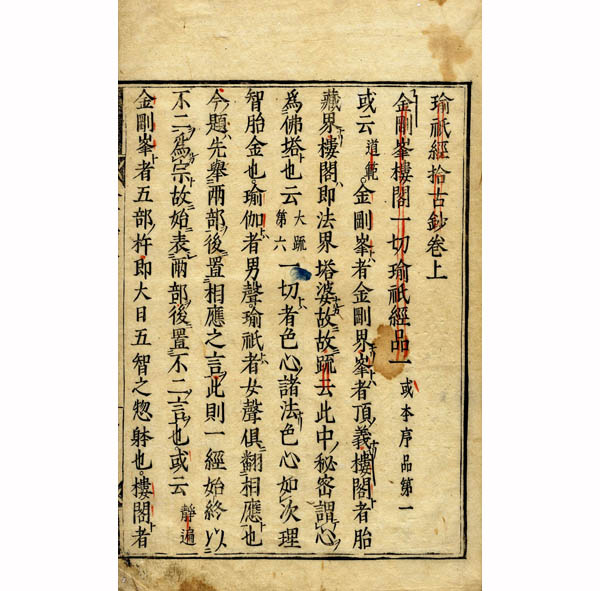 瑜祇經拾古鈔卷上
金剛峯樓閣一切瑜祇經品一 或本序品第一
或云 道範 金剛峯者金剛界峯者頂義樓閣者胎
藏界樓閣即法界塔婆故故疏云此中秘密謂心
為佛塔也云 大疏第六 一切者色心諸法色心如次理
智胎金也瑜伽者男聲瑜祇者女聲俱翻相應也
今題先舉兩部後置相應之言此則一經始終以
不二為宗故始表兩部後置不二言也或云 靜遍
金剛峯者五部杵即大日五智之惣躰也樓閣者